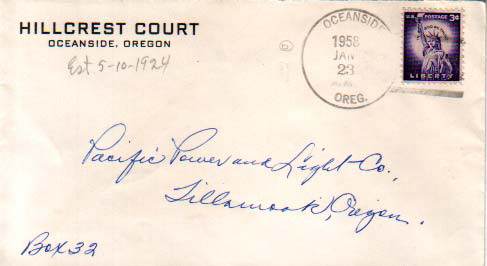 HILLCREST COURT
OCEANSIDE, OREGON
Est. 5-10-1924
OCEANSIDE
1958
JAN
23
OREG.
U.S. POSTAGE 3¢
LIBERTY
Pacific Power and Light Co.,
Tillamook, Oregon.
Box 32